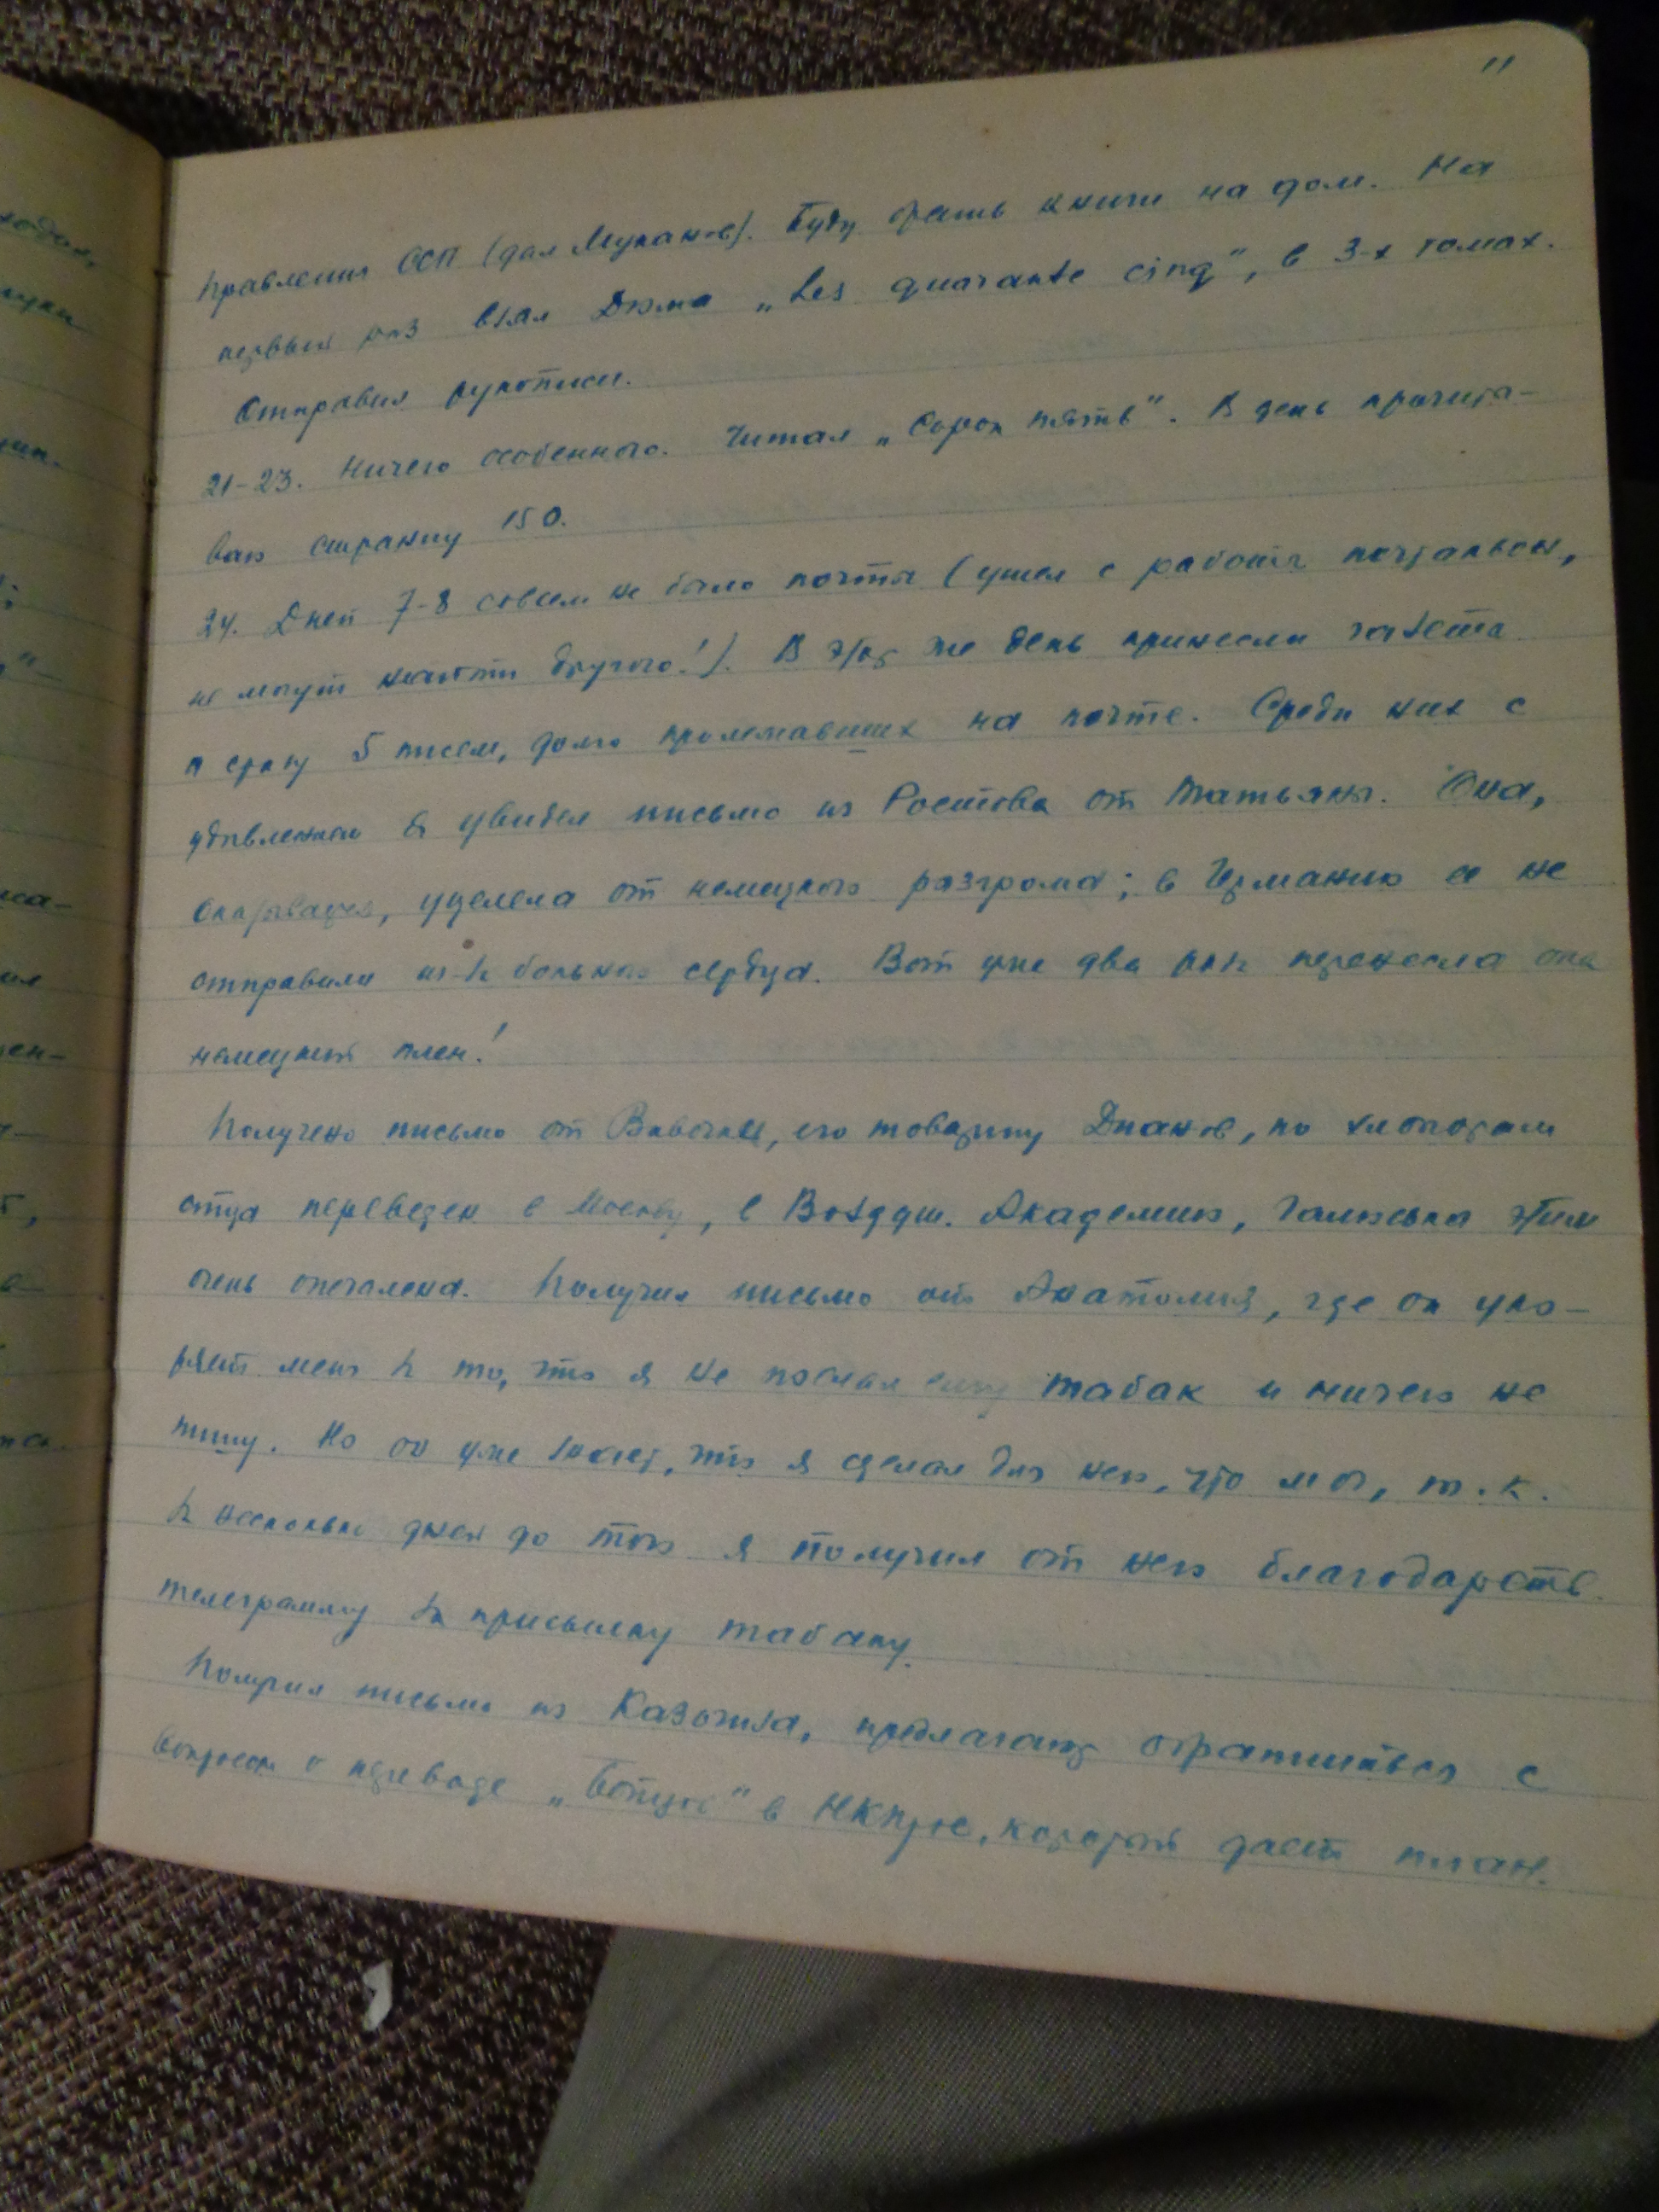 11
Правления ССП (дал Муканов). Буду брать книги на дом. На
первый раз взял Дюма „Les quarante cinq", в 3-х томах.
Отправил рукописи.
21-23. Ничего особенного. Читал „Сорок пять". В день прочиты-
ваю страниц 150.
24. Дней 7-8 совсем не было почты (ушел с работы почтальон,
не могут найти другого!). В этот же день принесли газеты
и сразу 5 писем, долго пролежавших на почте. Среди них с
удивлением я увидел письмо из Ростова от Татьяны. Она,
оказывается, уцелела от немецкого разгрома; в Германию ее не
отправили из-за больного сердца. Вот уже два раза перенесла она
немецкий плен!
Получено письмо от Вивочки, его товарищ Диканов, по хлопотам
отца переведен в Москву, в Воздуш. Академию, Галюська этим
очень опечалена. Получил письмо от Анатолия, где он уко-
ряет меня за то, что я не послал ему табак и ничего не
пишу. Но он уже знает, что я сделал для него, что мог, т.к.
за несколько дней до того я получил от него благодарств.
телеграмму за присылку табаку.
Получил письмо из Казогиза, предлагают обратиться с
вопросом о переводе в НКПрос, который дает план.